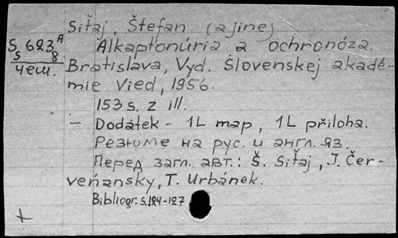 Siťaj, Štefan (a jine)
S 623 A
5 8
Чеш.
Alkaptonúria a ochronóza.
Bratislava, Vyd. Slovenskej akadé-
mie Vied, 1956.
153 s. z ill.
– Dodátek - 1L map, 1L přiloha.
Резюме на рус. и англ. яз.
Перед загл. авт.: Š. Siťaj, J. Čer-
veňansky, T. Urbánek.
Bibliogr: s. 124-127